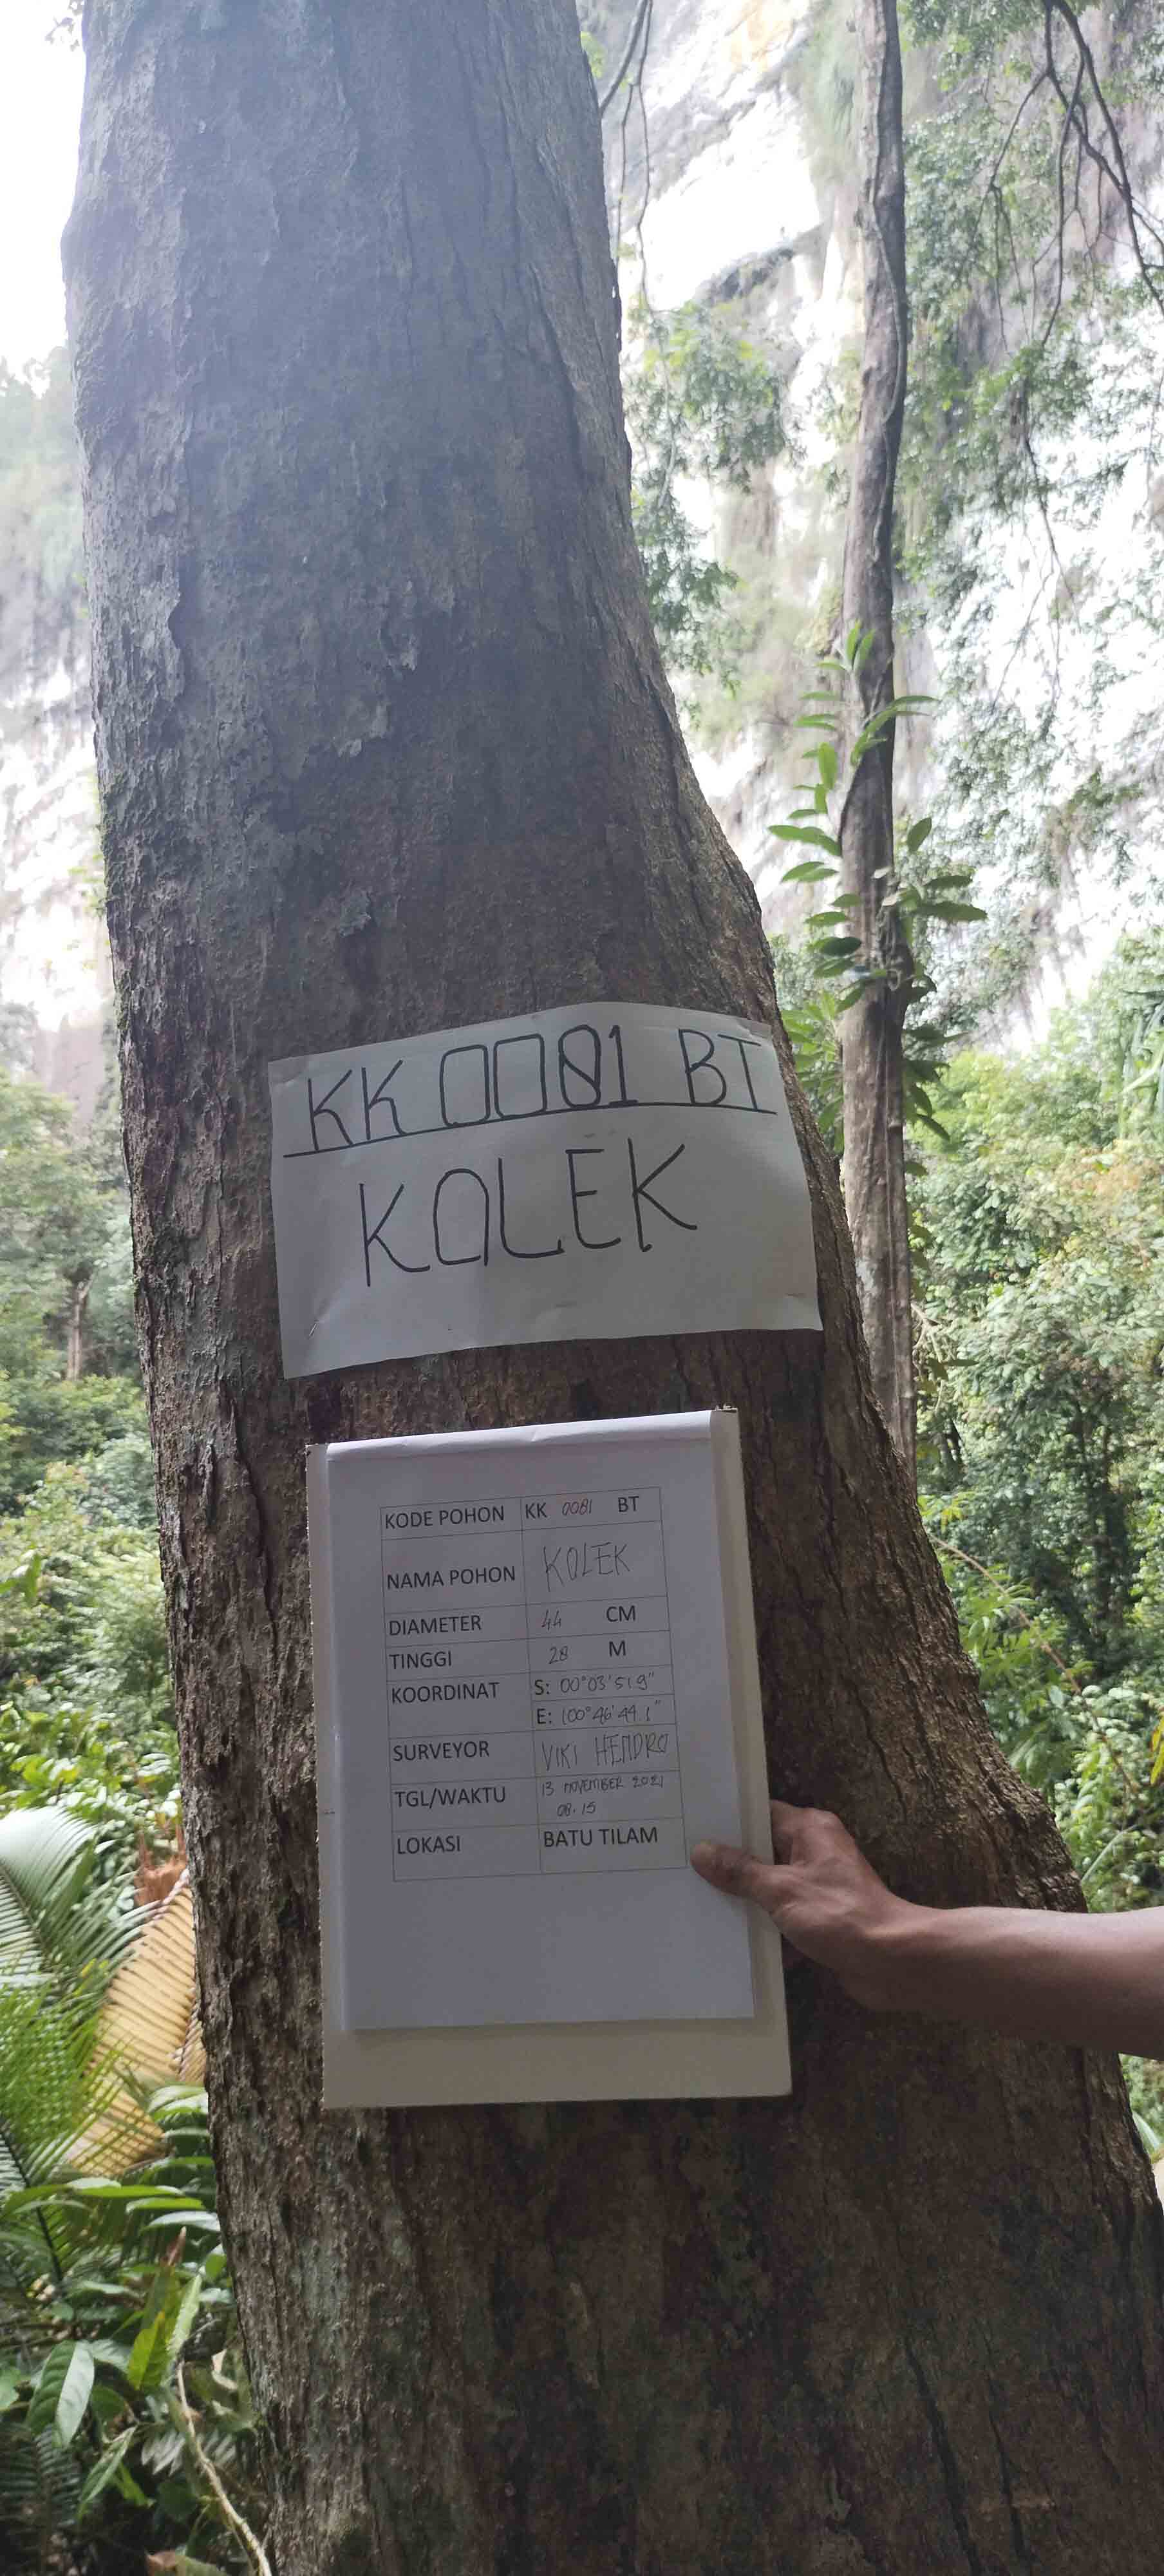 KK 0081 BT
KOLEK
KODE POHON KK 0081 BT
NAMA POHON KOLEK
DIAMETER 44 CM
TINGGI 28 M
KOORDINAT S: 00°03'51.9"
E: 100°46'44.1"
SURVEYOR VIKI HENDRO
TGL/WAKTU 13 NOVEMBER 2021
08.15
LOKASI BATU TILAM